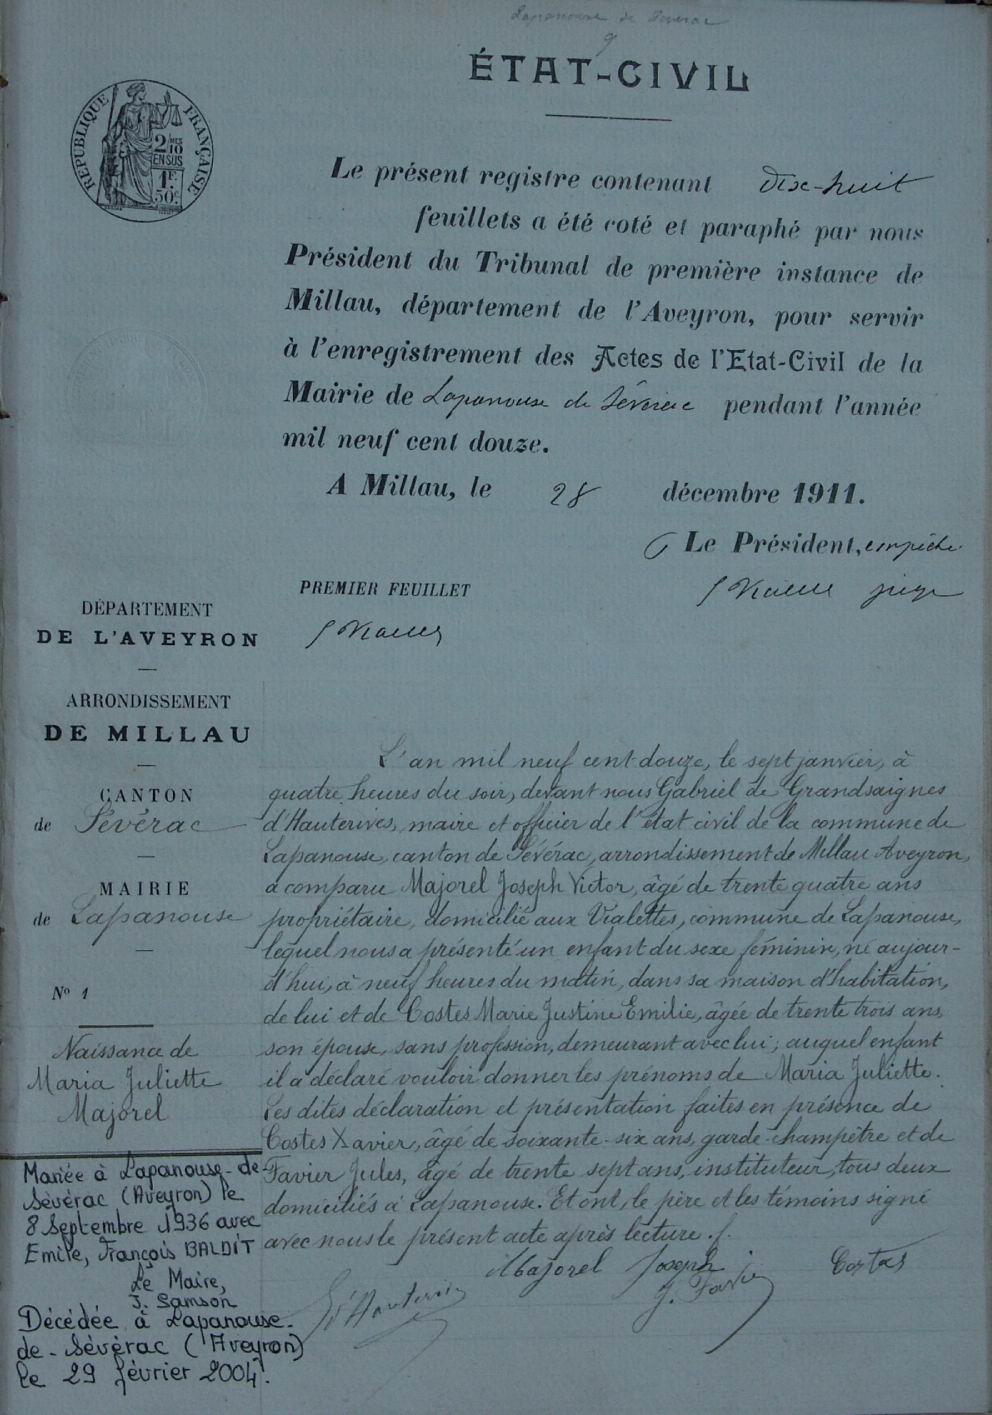 Lapanouse de Séverac
9
ÉTAT-CIVIL
RÉPUBLIQUE FRANÇAISE
2/10 MES
EN SUS
1F.
50c.
Le présent registre contenant dix-huit
feuillets a été coté et paraphé par nous
Président du Tribunal de première instance de
Millau, département de l'Aveyron, pour servir
à l'enregistrement des Actes de l'Etat-Civil de la
Mairie de Lapanouse de Séverac pendant l'année
mil neuf cent douze.
A Millau, le 28 décembre 1911.
Le Président, empêché
juge
PREMIER FEUILLET
DÉPARTEMENT
DE L'AVEYRON
ARRONDISSEMENT
DE MILLAU
CANTON
de Sévérac
MAIRIE
de Lapanouse
N° 1
Naissance de
Maria Juliette
Majorel
Mariée à Lapanouse-de-
Sévérac (Aveyron) le
8 Septembre 1936 avec
Emile, François BALDIT
Le Maire,
J. Samson
Décédée à Lapanouse-
de-Sévérac (Aveyron)
le 29 février 2004.
L'an mil neuf cent douze, le sept janvier, à
quatre heures du soir, devant nous Gabriel de Grandsaignes
d'Hauterives, maire et officier de l'état civil de la commune de
Lapanouse, canton de Sévérac, arrondissement de Millau Aveyron,
a comparu Majorel Joseph Victor, âgé de trente quatre ans
propriétaire, domicilié aux Vialettes, commune de Lapanouse,
lequel nous a présenté un enfant du sexe féminin, né aujour-
d'hui, à neuf heures du matin, dans sa maison d'habitation,
de lui et de Costes Marie Justine Emilie, âgée de trente trois ans,
son épouse, sans profession, demeurant avec lui; auquel enfant
il a déclaré vouloir donner les prénoms de Maria Juliette.
Les dites déclaration et présentation faites en présence de
Costes Xavier, âgé de soixante-six ans, garde-champêtre et de
Favier Jules, âgé de trente sept ans, instituteur, tous deux
domiciliés à Lapanouse. Et ont, le père et les témoins signé
avec nous le présent acte après lecture.
Majorel Joseph Costes
J. Favier
d'Hauterives